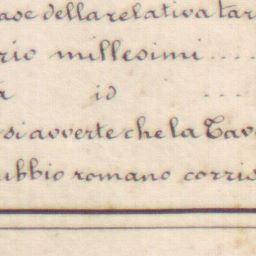 ase della relativa tar
rio millesimi ....
id ....
si avverte che la Tav
ubbio romano corris